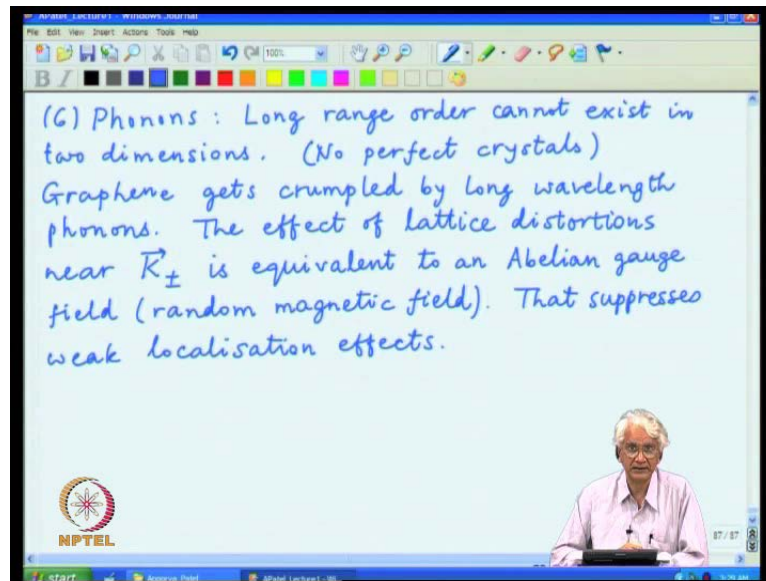 APatel_Lecture1 - Windows Journal
File Edit View Insert Actions Tools Help
100%
B I
(6) Phonons : Long range order cannot exist in
two dimensions. (No perfect crystals)
Graphene gets crumpled by long wavelength
phonons. The effect of lattice distortions
near K⃗± is equivalent to an Abelian gauge
field (random magnetic field). That suppresses
weak localisation effects.
NPTEL
87 / 87
start
Apoorva Patel
APatel_Lecture1 - Wi...
3:29 AM